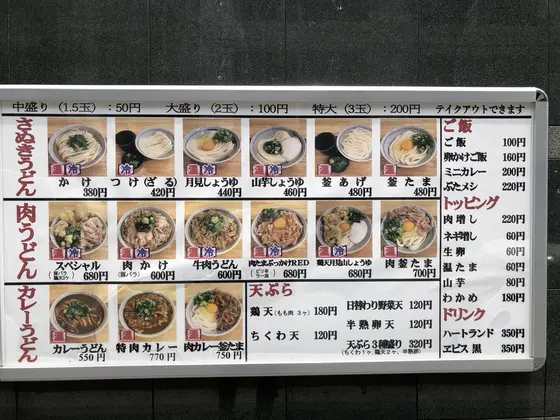 中盛り（1.5玉）：50円　大盛り（2玉）：100円　特大（3玉）：200円　テイクアウトできます
さぬきうどん
温 冷 温 冷 温 冷 温 温
かけ　つけ（ざる）　月見しょうゆ　山芋しょうゆ　釜あげ　釜たま
380円　420円　440円　460円　480円　480円
肉うどん
温 冷 温 冷 温 冷 温 冷 温
スペシャル　肉かけ　牛肉うどん　肉たまぶっかけRED　鶏天月見山しょうゆ　肉釜たま
680円　600円　600円　680円　680円　700円
カレーうどん
温 温 温
カレーうどん　特肉カレー　肉カレー釜たま
550円　770円　750円
天ぷら
鶏天（もも肉 3ヶ）180円
ちくわ天　120円
日替わり野菜天　120円
半熟卵天　120円
天ぷら3種盛り　320円
（ちくわ1ヶ、鶏天2ヶ、半熟卵）
ご飯
ご飯　100円
卵かけご飯　160円
ミニカレー　200円
ぶたメシ　220円
トッピング
肉増し　220円
ネギ増し　60円
生卵　60円
温たま　60円
山芋　80円
わかめ　180円
ドリンク
ハートランド　350円
ヱビス黒　350円